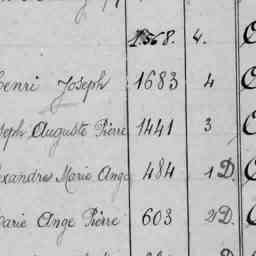 1568. 4.
Henri Joseph 1683 4
seph Auguste Pierre 1441 3
exandre Marie Ange 484 1 D.
Marie Ange Pierre 603 2 D.